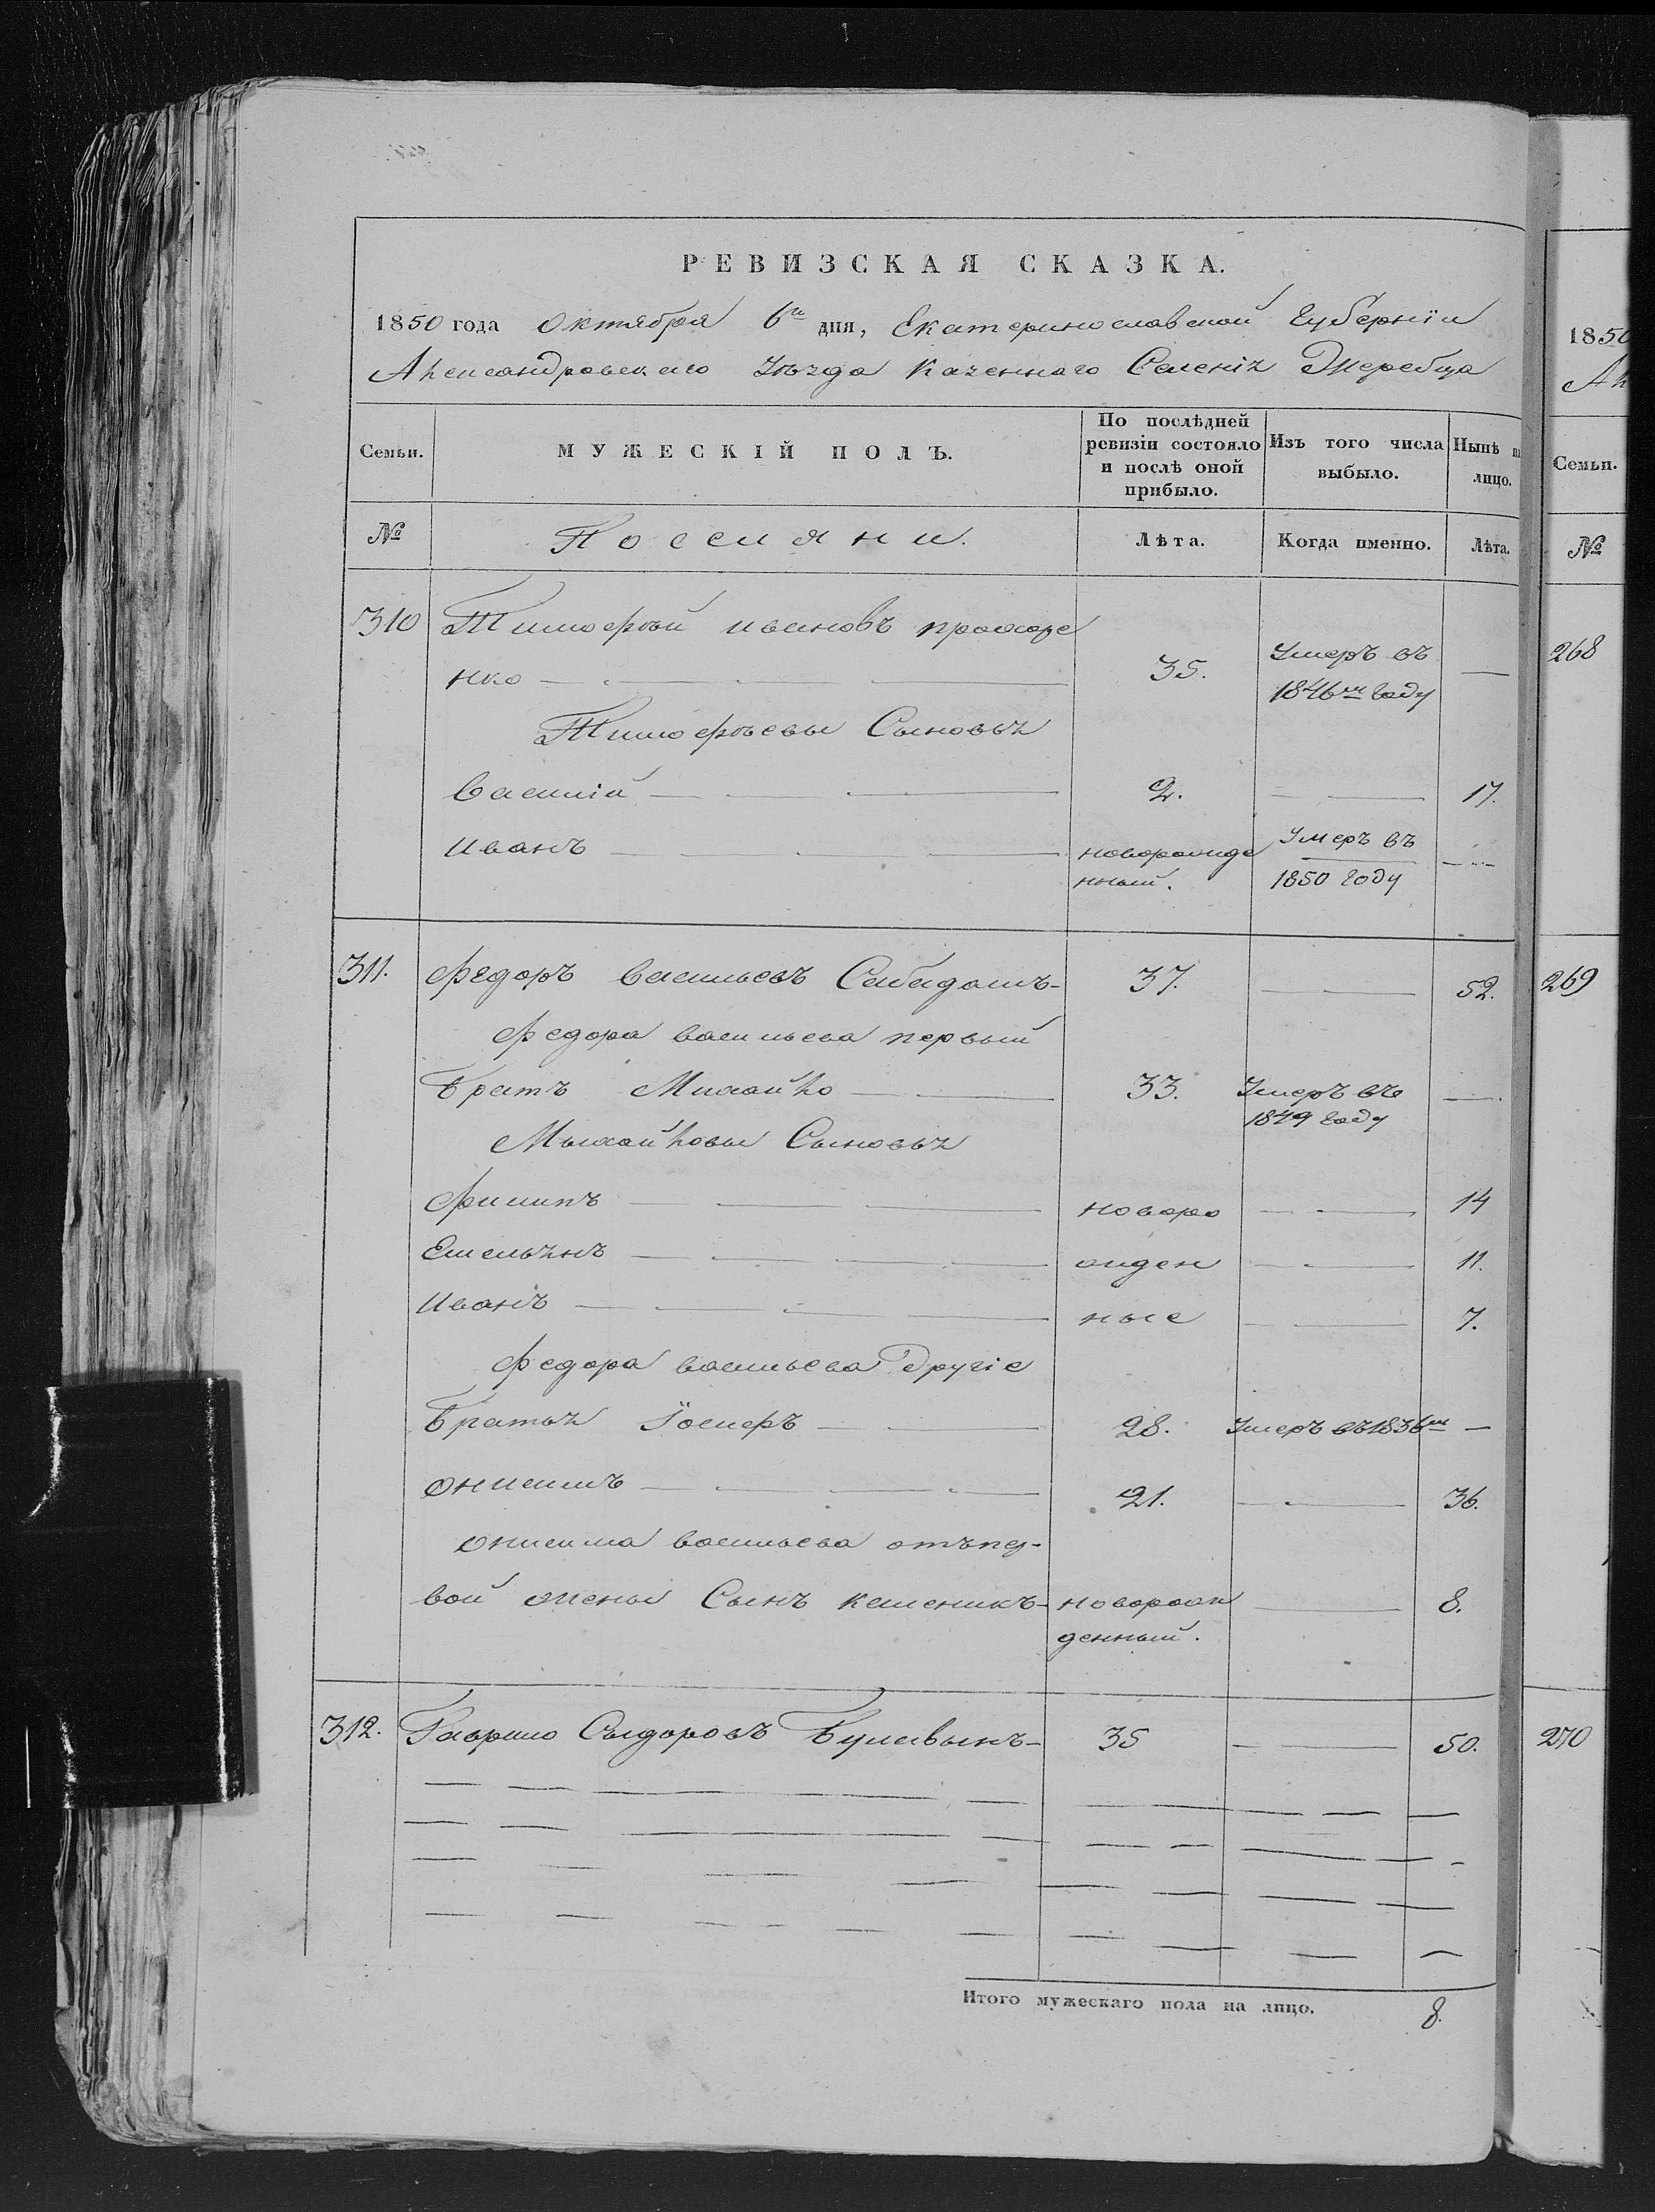 РЕВИЗСКАЯ СКАЗКА.
1850 года Октября 6го дня, Екатеринославской Губернїи
Александровскаго Уѣзда Казеннаго Селенія Жеребца
Семьи. МУЖЕСКІЙ ПОЛЪ. По послѣдней ревизіи состояло и послѣ оной прибыло. Изъ того числа выбыло. Нынѣ на лицо.
№ Поселяни. Лѣта. Когда именно. Лѣта.
310 Тимофѣй ивановъ прохоре
нко 35. Умеръ въ 1846м году —
Тимофѣевы Сыновья
Василій 2. — 17.
иванъ новорожде нный. Умеръ въ 1850 году —
311. Федоръ васильевъ 37. — 52.
Федора васильева первый
Братъ Михайло 33. Умеръ въ 1849 году —
Мыхайловы Сыновья
Филипъ новоро — 14
Емельянъ жден — 11.
иванъ ные — 7.
Федора васильева Другіе
Братья Їосифъ 28. Умеръ въ 1836м —
онисимъ 21. — 36.
онисима васильева отъпер-
вой жены Сынъ новорож денный. — 8.
312. Гаврило Сыдоровъ 35 — 50.
Итого мужескаго пола на лицо. 8.
1850
Ал
Семьи.
№
268
269
270